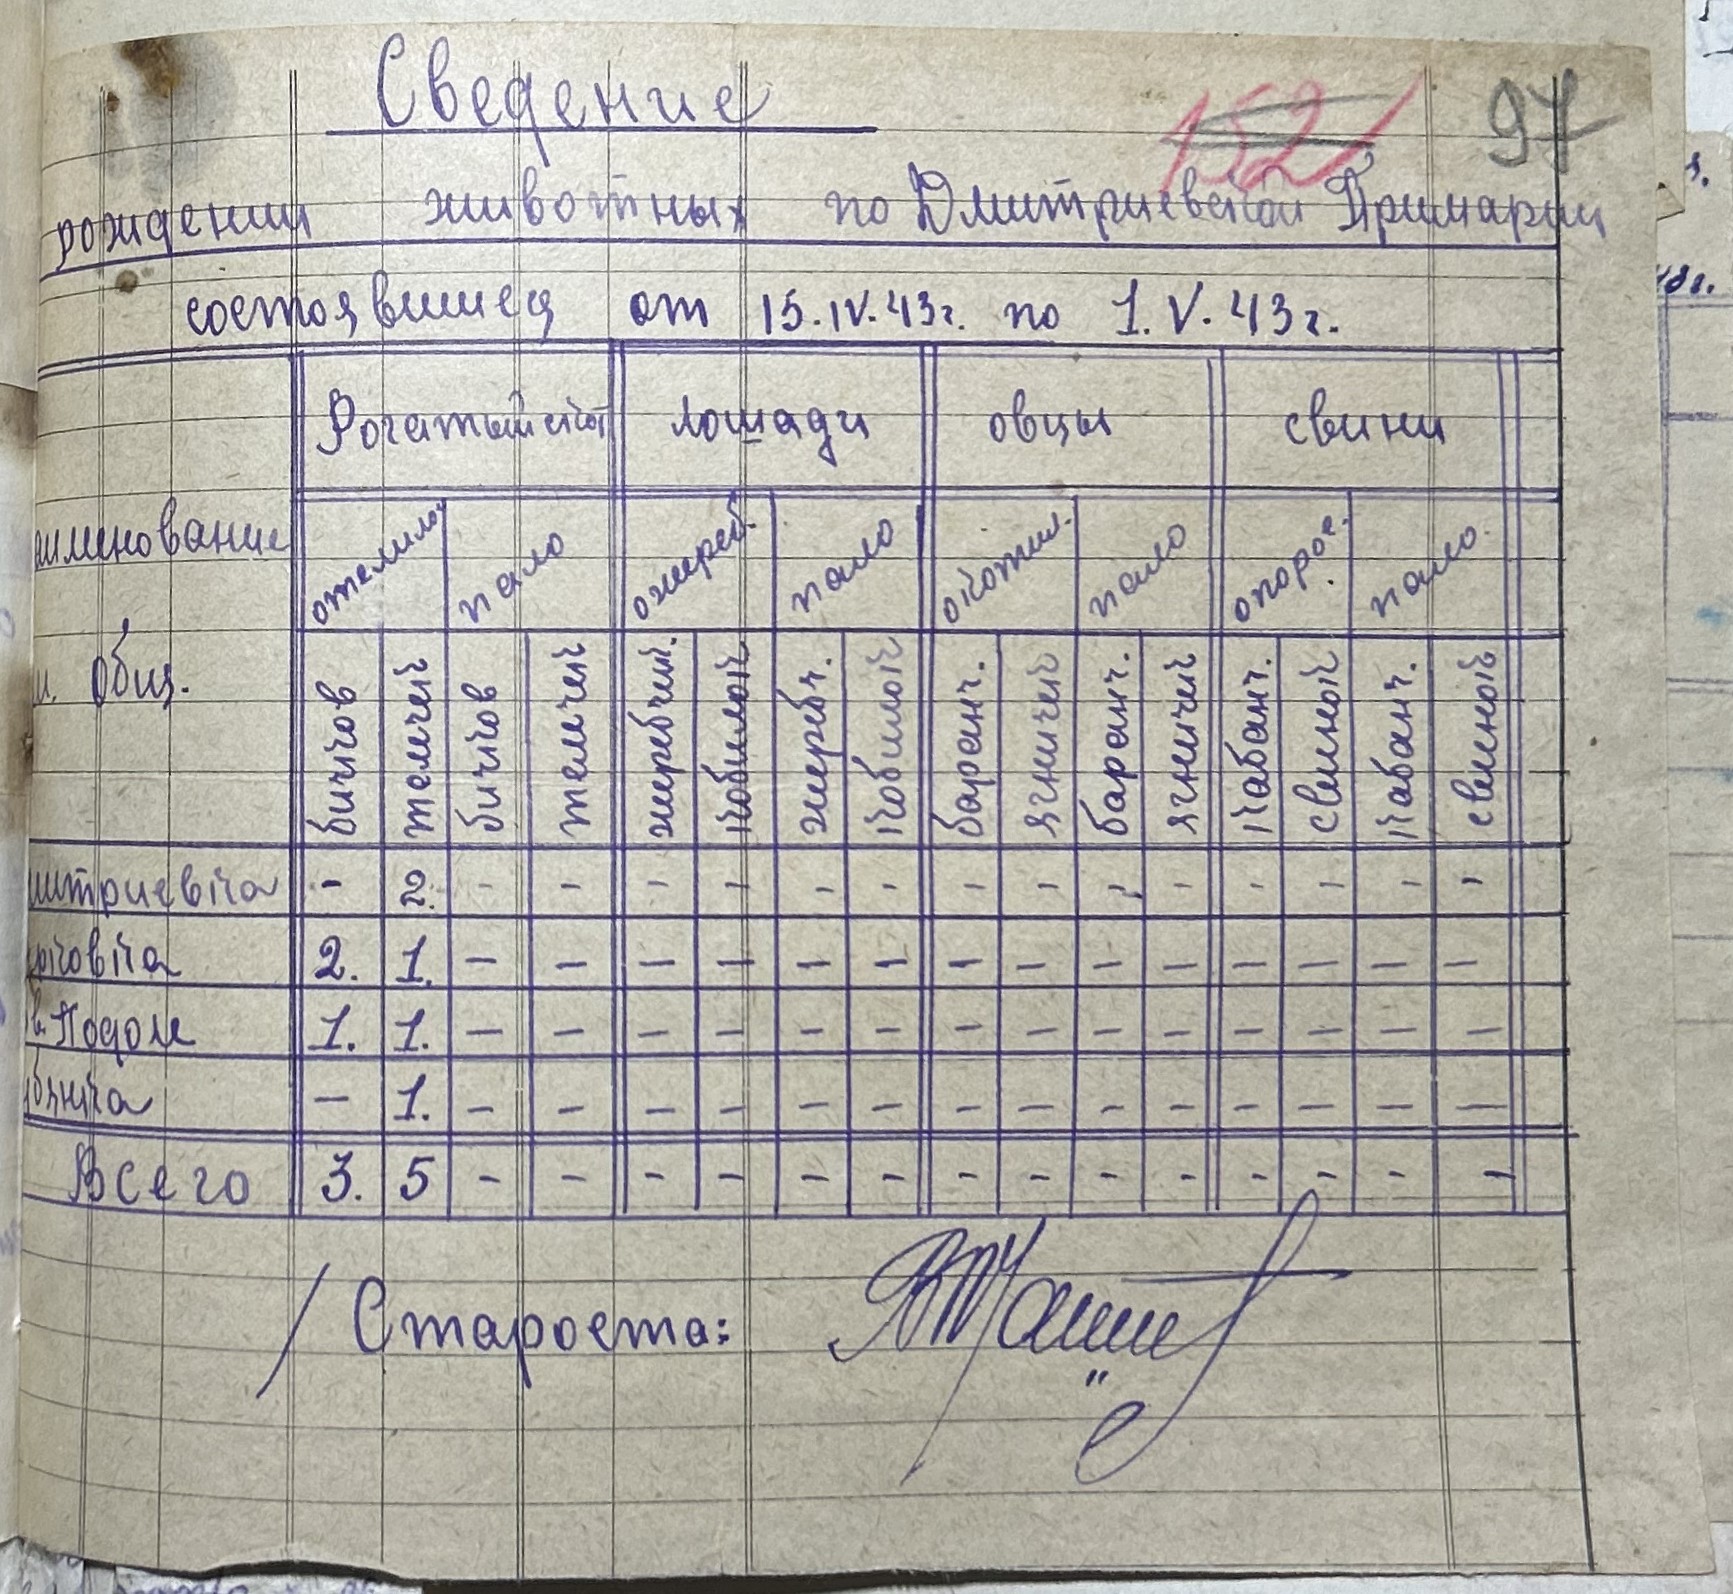 Сведение
152 97
рождении животных по Дмитриевской Примарии
состоявшиеся от 15.IV.43г. по 1.V.43г.
аименование
н. общ.
Рогатый скот лошади овцы свини
отелилос пало ожереб. пало окотил. пало опорос. пало.
бичков теличек бичков теличек жеребчик. кобилок жеребч. кобилок баранч. ягничек баранч. ягничек кабанч. свинок кабанч. свинок
митриевка - 2. - - - - - - - - - - - - - -
ковка 2. 1. - - - - - - - - - - - - - -
Подол 1. 1. - - - - - - - - - - - - - -
бянка - 1. - - - - - - - - - - - - - -
Всего 3. 5 - - - - - - - - - - - - - -
/ Староста: